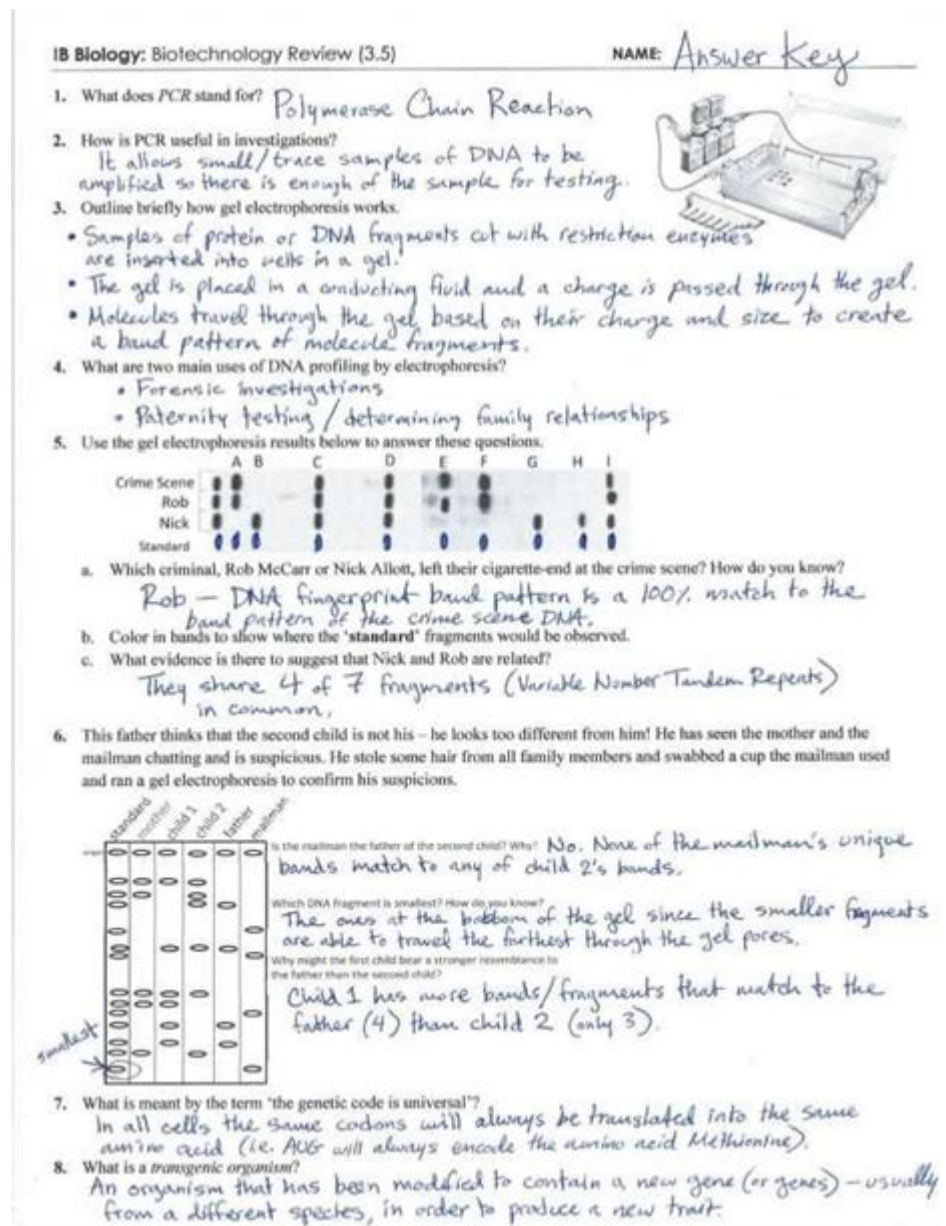 IB Biology: Biotechnology Review (3.5) NAME: Answer Key
1. What does PCR stand for? Polymerase Chain Reaction
2. How is PCR useful in investigations?
It allows small/trace samples of DNA to be
amplified so there is enough of the sample for testing.
3. Outline briefly how gel electrophoresis works.
• Samples of protein or DNA fragments cut with restriction enzymes
are inserted into wells in a gel.
• The gel is placed in a conducting fluid and a charge is passed through the gel.
• Molecules travel through the gel based on their charge and size to create
a band pattern of molecule fragments.
4. What are two main uses of DNA profiling by electrophoresis?
• Forensic investigations
• Paternity testing / determining family relationships
5. Use the gel electrophoresis results below to answer these questions.
A B C D E F G H I
Crime Scene
Rob
Nick
Standard
a. Which criminal, Rob McCarr or Nick Allott, left their cigarette-end at the crime scene? How do you know?
Rob — DNA fingerprint band pattern is a 100% match to the
band pattern of the crime scene DNA.
b. Color in bands to show where the 'standard' fragments would be observed.
c. What evidence is there to suggest that Nick and Rob are related?
They share 4 of 7 fragments (Variable Number Tandem Repeats)
in common.
6. This father thinks that the second child is not his – he looks too different from him! He has seen the mother and the
mailman chatting and is suspicious. He stole some hair from all family members and swabbed a cup the mailman used
and ran a gel electrophoresis to confirm his suspicions.
standard mother child 1 child 2 father mailman
Is the mailman the father of the second child? Why? No. None of the mailman's unique
bands match to any of child 2's bands.
Which DNA fragment is smallest? How do you know?
The ones at the bottom of the gel since the smaller fragments
are able to travel the farthest through the gel pores.
Why might the first child bear a stronger resemblance to
the father than the second child?
Child 1 has more bands/fragments that match to the
father (4) than child 2 (only 3).
smallest
7. What is meant by the term 'the genetic code is universal'?
In all cells the same codons will always be translated into the same
amino acid (i.e. AUG will always encode the amino acid Methionine).
8. What is a transgenic organism?
An organism that has been modified to contain a new gene (or genes) – usually
from a different species, in order to produce a new trait.